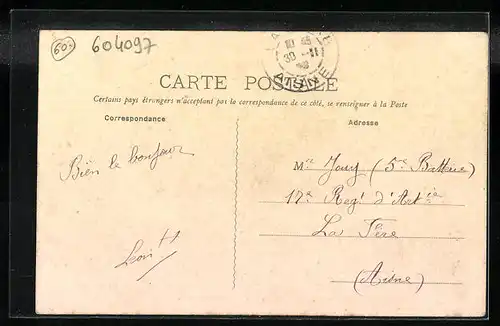 60-
604097
LA FÈRE
AISNE
30 -11
CARTE POSTALE
Certains pays étrangers n'acceptant pas la correspondance de ce côté, se renseigner à la Poste
Correspondance
Adresse
Bien le bonjour
Mr Jouy (5me Batterie
17e Regt d'Artie
La Fère
(Aisne)